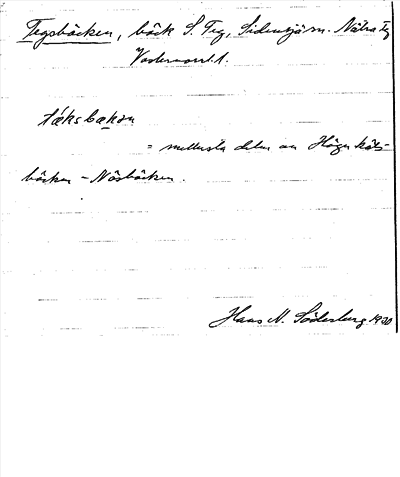 Tegsbäcken, bäck S. Teg, Sidensjö sn. Nätra tg
táksbækɔn
= mellersta delen av Höga
bäcken - Näsbäcken.
Hans N. Söderberg 1930